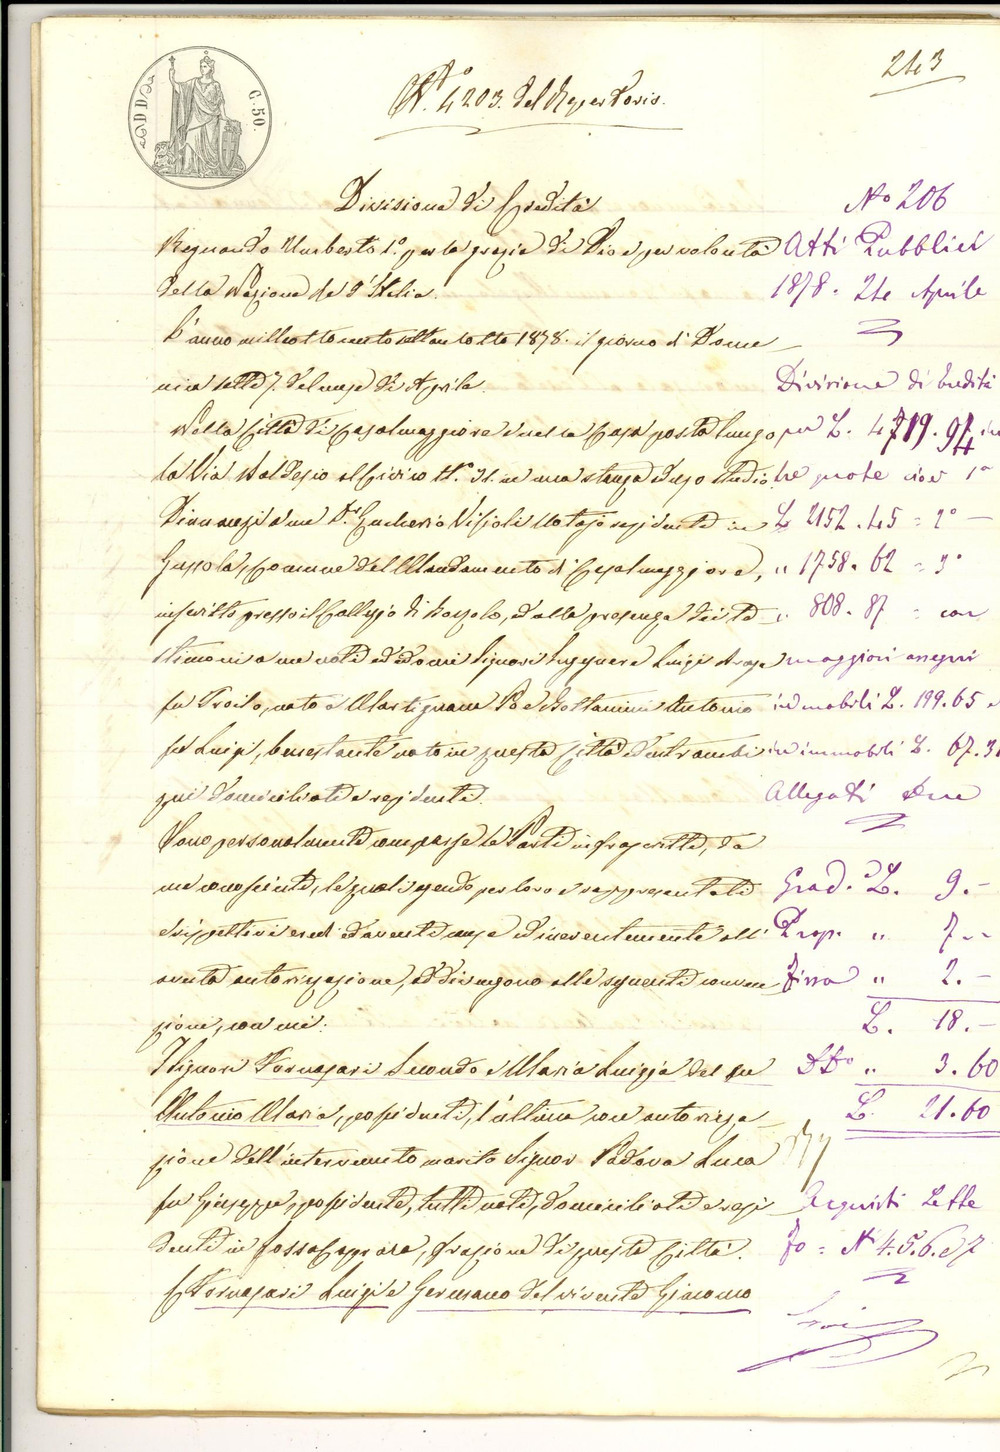 243
N.° 4203. del Repertorio.
C. 50.
Divisione di Eredità
Regnando Umberto 1.° per la grazia di Dio e per volontà
della Nazione Re d'Italia.
L'anno mille ottocento settantotto 1878. il giorno di Dome
nica sette 7. del mese di Aprile.
Nella Città di Casalmaggiore e nella Casa posta lungo
la Via Baldesio al Civico N.° 31. in una stanza ad uso studio.
Dinanzi a me D.r Guglielmo Visioli Notajo residente in
Gussola, Comune del Mandamento di Casalmaggiore,
inscritto presso il Collegio di Bozzolo, ed alla presenza dei te
stimoni a me noti ed idonei Signori Ingegnere Luigi
fu Troilo, nato a Martignana Po e Antonio
fu Luigi, benestante nato in questa Città ed entrambi
qui domiciliati e residenti.
Sono personalmente comparse le Parti infrascritte, da
me conosciute, le quali agendo per loro e rappresentati
e rispettivi eredi ed aventi causa ed inerentemente all'
avuta autorizzazione, addivengono alla seguente conven
zione, con cui:
I Signori Fornasari Secondo e Maria Luigia del fu
Antonio Maria, possidenti, l'ultima con autorizza
zione dell'intervenuto marito Signor Padova Luca
fu Giuseppe, possidente, tutti nati, domiciliati e resi
denti in Fossacaprara, frazione di questa Città.
E Fornasari Luigi e Germano del vivente Giacomo
N° 206
Atti Pubblici
1878. 24 Aprile
Divisione di Eredità
per L. 4719.94 in
tre quote cioè 1°
L 2152.45 = 2°
" 1758.62 = 3°
" 808.87 = con
maggiori assegni
in mobili L. 199.65 e
in immobili L. 67.3
Allegati Due
Grad. L. 9.-
Prop. " 7.-
Fissa " 2.-
L. 18.-
" 3.60
L. 21.60
Acquisti Lette
Fo = N 4.5.6.e 7